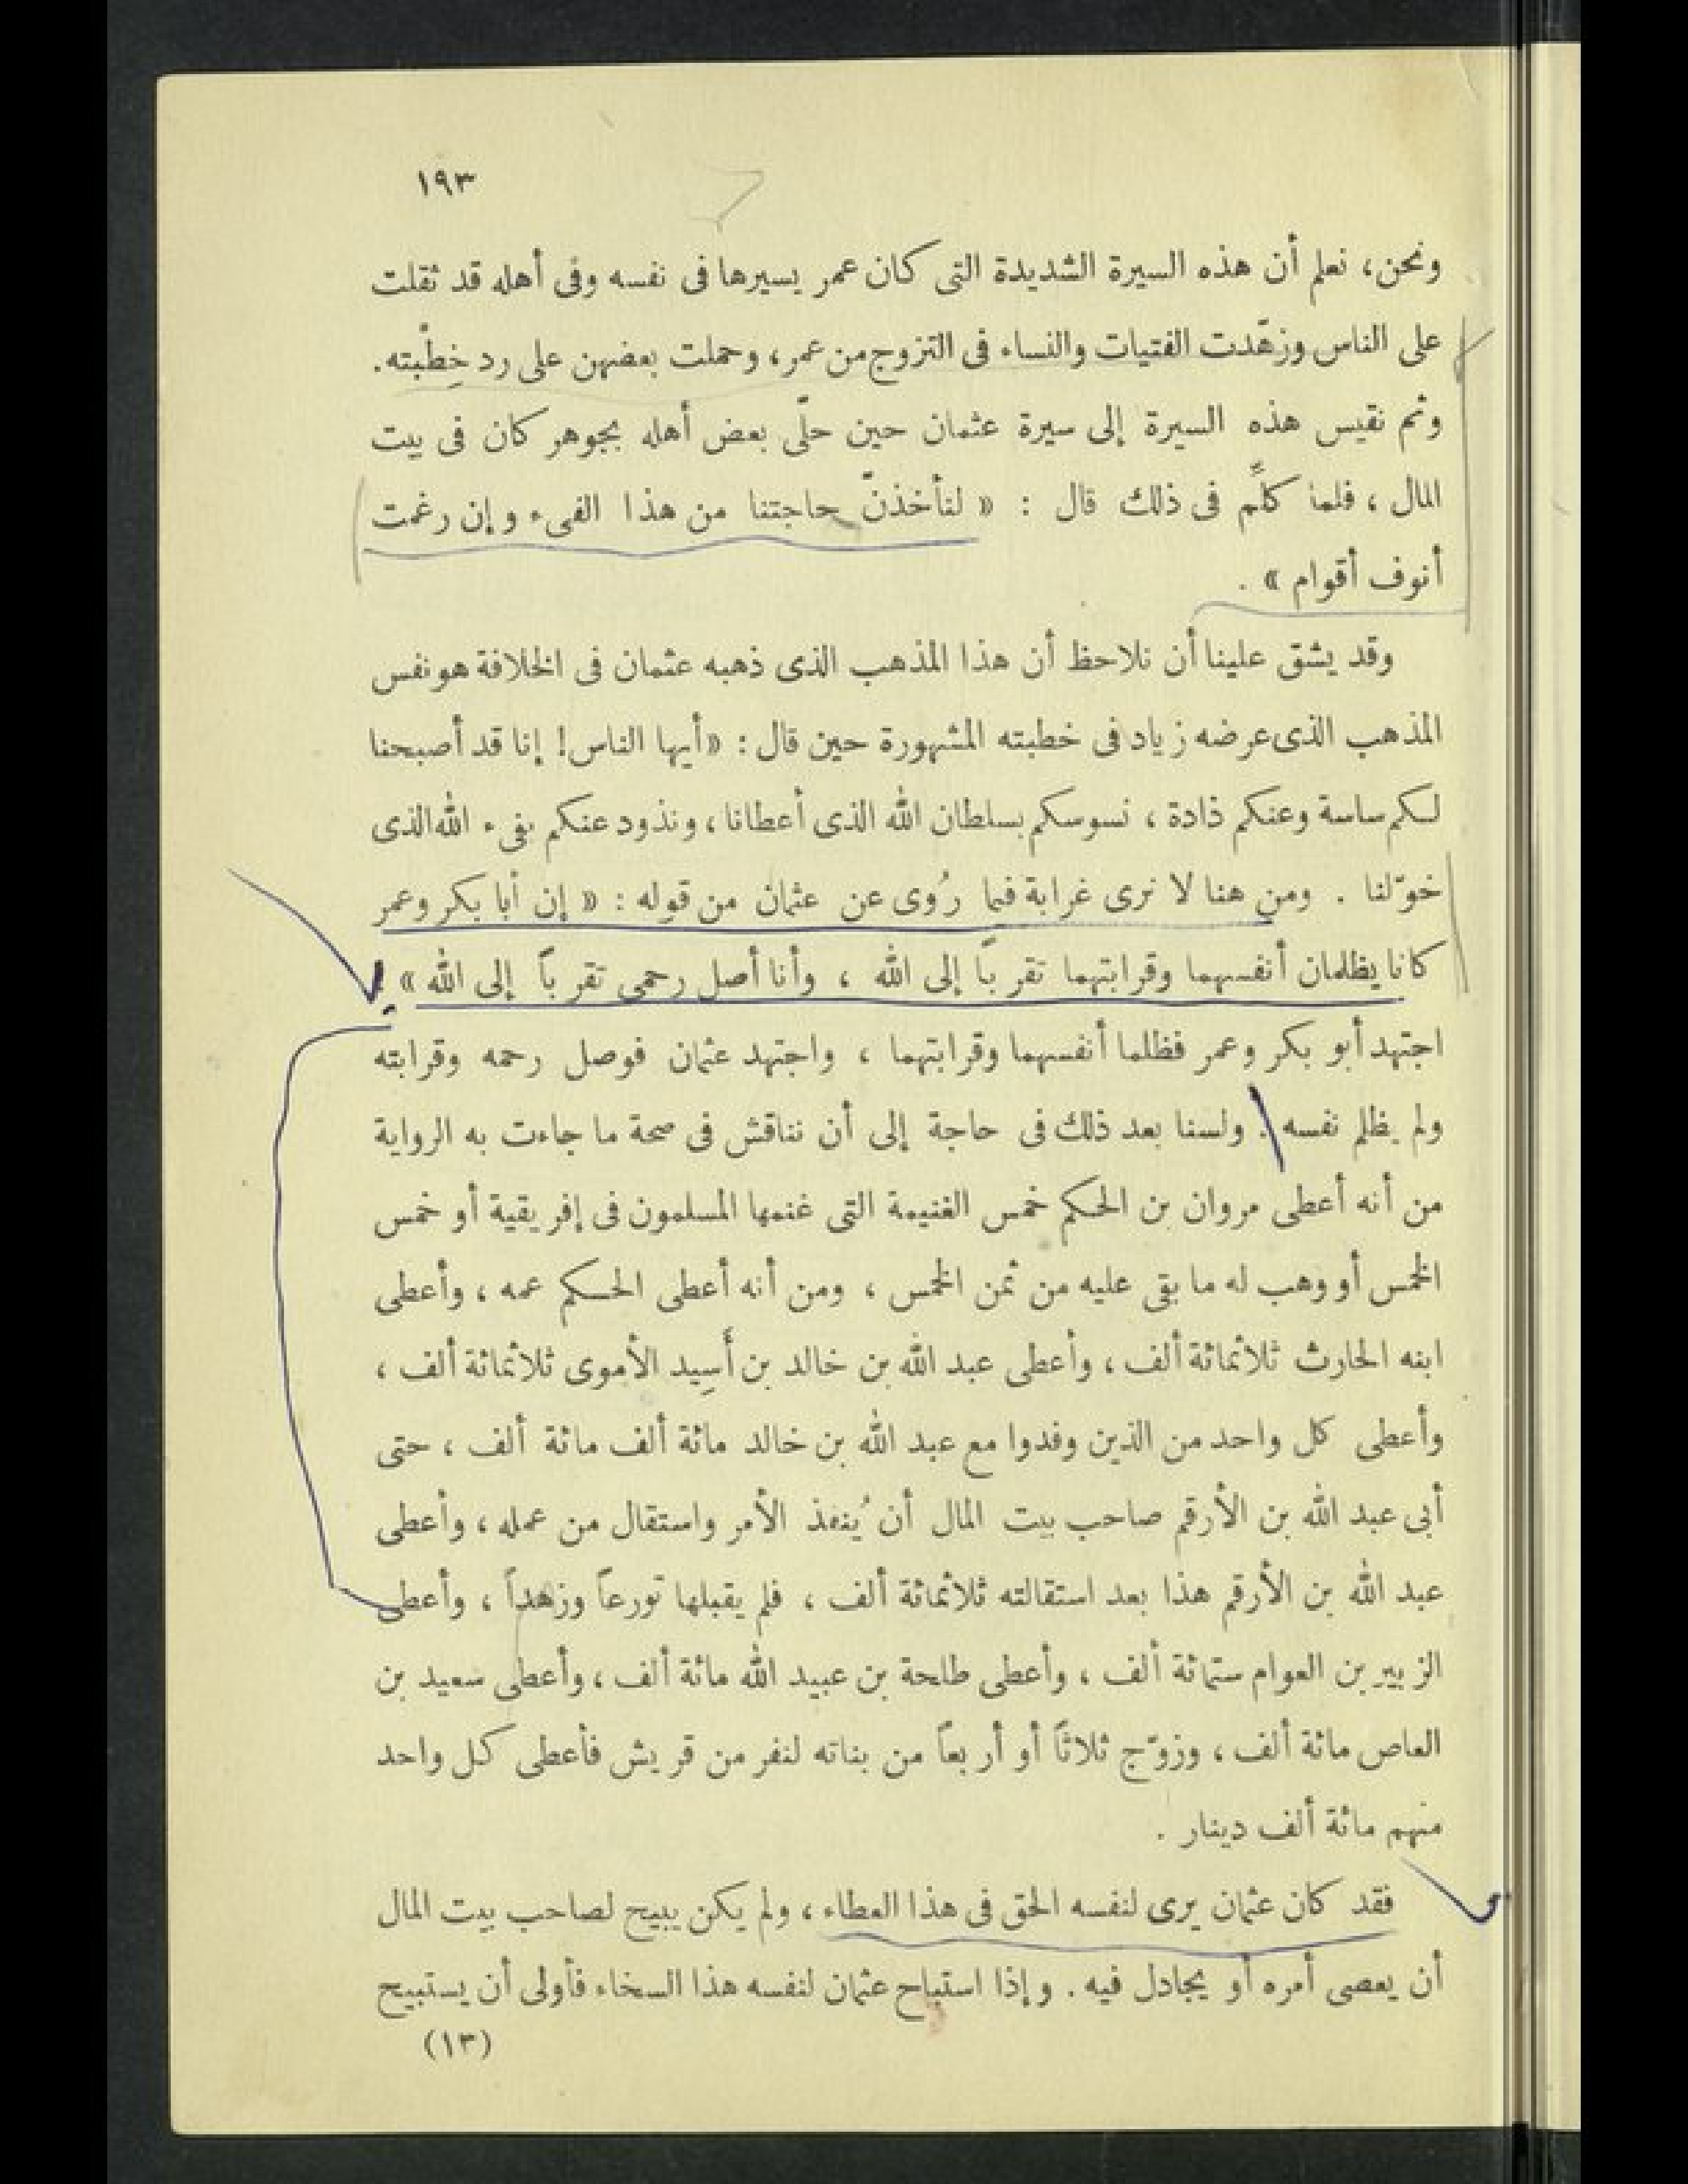 ١٩٣
ونحن، نعلم أن هذه السيرة الشديدة التى كان عمر يسيرها فى نفسه وفى أهله قد ثقلت
على الناس وزهّدت الفتيات والنساء فى التزوج من عمر، وحملت بعضهن على رد خِطْبته.
وثم نقيس هذه السيرة إلى سيرة عثمان حين حلّى بعض أهله بجوهر كان فى بيت
المال ، فلما كلِّم فى ذلك قال : « لنأخذنّ حاجتنا من هذا الفىء وإن رغمت
أنوف أقوام » .
وقد يشق علينا أن نلاحظ أن هذا المذهب الذى ذهبه عثمان فى الخلافة هو نفس
المذهب الذى عرضه زياد فى خطبته المشهورة حين قال : « أيها الناس ! إنا قد أصبحنا
لكم ساسة وعنكم ذادة ، نسوسكم بسلطان الله الذى أعطانا ، ونذود عنكم بفىء الله الذى
خوّلنا . ومن هنا لا نرى غرابة فيما رُوى عن عثمان من قوله : « إن أبا بكر وعمر
كانا يظلمان أنفسهما وقرابتهما تقرباً إلى الله ، وأنا أصل رحمى تقرباً إلى الله » .
اجتهد أبو بكر وعمر فظلما أنفسهما وقرابتهما ، واجتهد عثمان فوصل رحمه وقرابته
ولم يظلم نفسه . ولسنا بعد ذلك فى حاجة إلى أن نناقش فى صحة ما جاءت به الرواية
من أنه أعطى مروان بن الحكم خمس الغنيمة التى غنمها المسلمون فى إفريقية أو خمس
الخمس أو وهب له ما بقى عليه من ثمن الخمس ، ومن أنه أعطى الحكم عمه ، وأعطى
ابنه الحارث ثلاثمائة ألف ، وأعطى عبد الله بن خالد بن أَسِيد الأموى ثلاثمائة ألف ،
وأعطى كل واحد من الذين وفدوا مع عبد الله بن خالد مائة ألف مائة ألف ، حتى
أبى عبد الله بن الأرقم صاحب بيت المال أن يُنفذ الأمر واستقال من عمله ، وأعطى
عبد الله بن الأرقم هذا بعد استقالته ثلاثمائة ألف ، فلم يقبلها تورعاً وزهداً ، وأعطى
الزبير بن العوام ستمائة ألف ، وأعطى طلحة بن عبيد الله مائة ألف ، وأعطى سعيد بن
العاص مائة ألف ، وزوّج ثلاثاً أو أربعاً من بناته لنفر من قريش فأعطى كل واحد
منهم مائة ألف دينار .
فقد كان عثمان يرى لنفسه الحق فى هذا العطاء ، ولم يكن يبيح لصاحب بيت المال
أن يعصى أمره أو يجادل فيه . وإذا استباح عثمان لنفسه هذا السخاء فأولى أن يستبيح
(١٣)